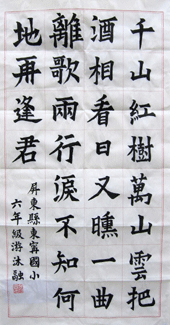 千山紅樹萬山雲把
酒相看日又曛一曲
離歌兩行淚不知何
地再逢君
屏東縣東寧國小
六年級游沐融